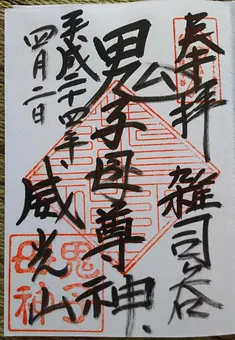 奉拝 雑司ヶ谷
鬼子母尊神
威光山
平成二十四年
四月二日
鬼子
母神